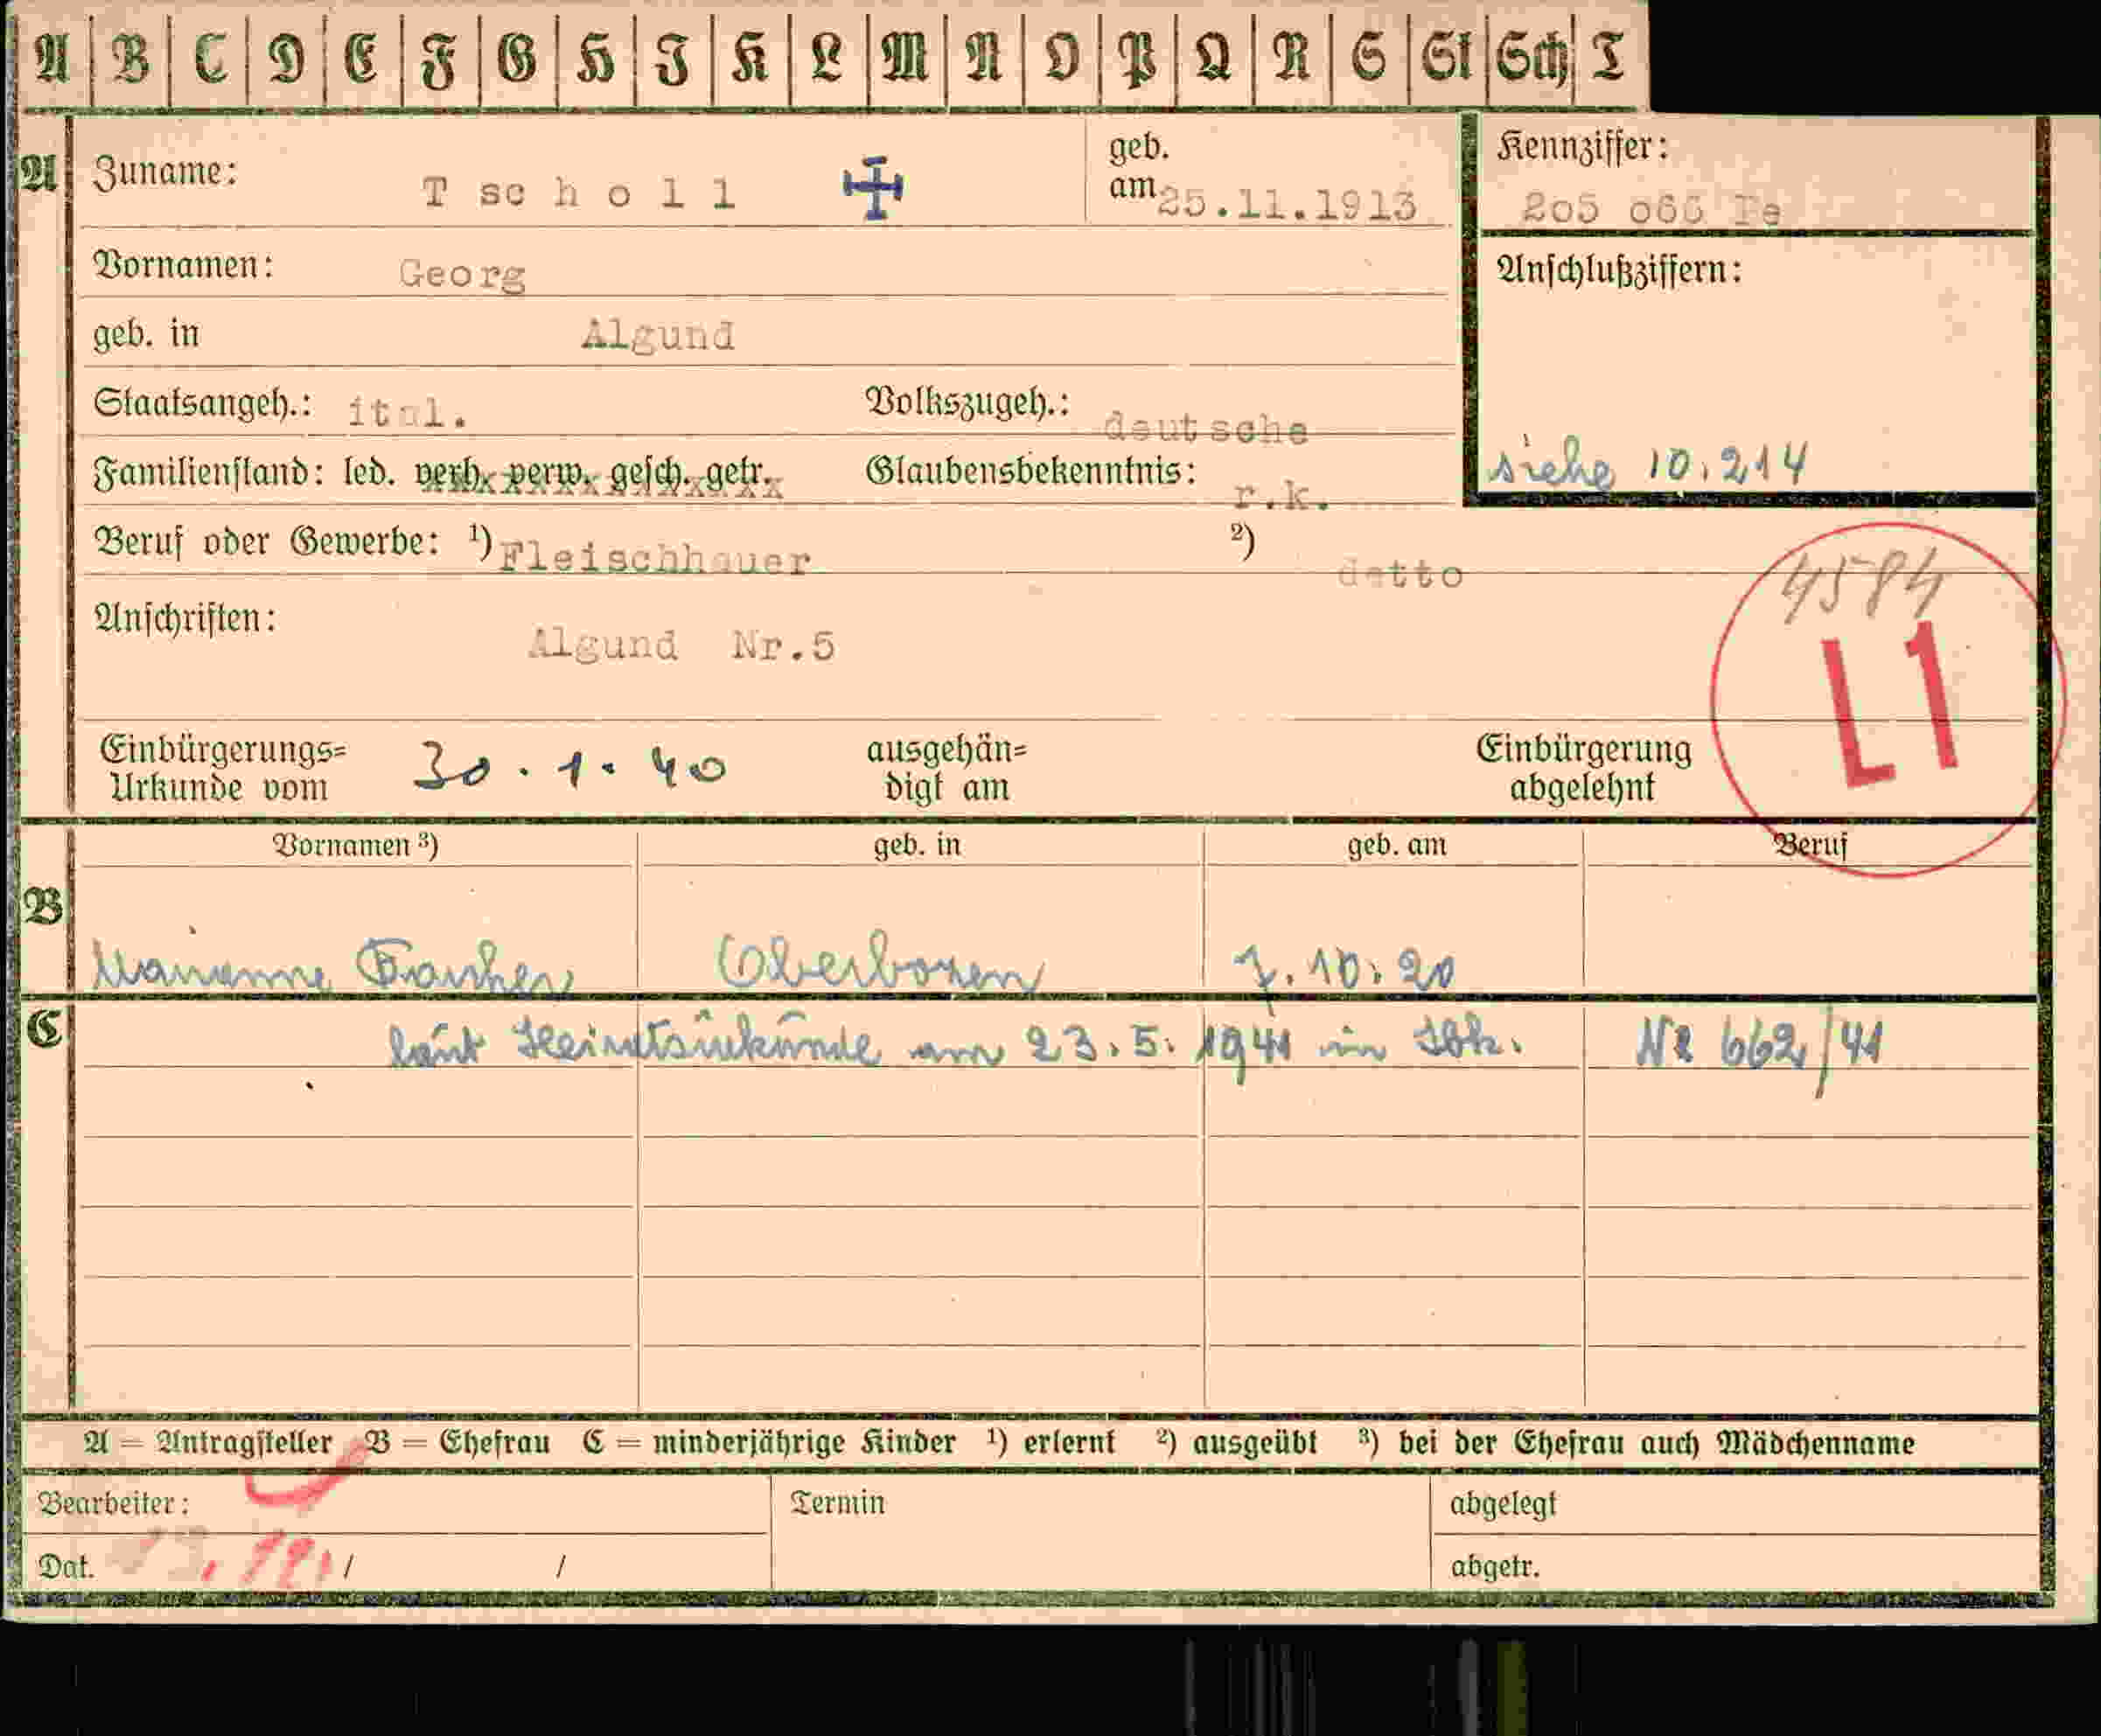 A B C D E F G H J K L M N O P Q R S St Sch T
A Zuname: Tscholl geb. am 25.11.1913 Kennziffer: 205 066 Te
Vornamen: Georg Anschlußziffern:
geb. in Algund
Staatsangeh.: ital. Volkszugeh.: deutsche
siehe 10.214
Familienstand: led. verh. verw. gesch. getr. Glaubensbekenntnis: r.k.
Beruf oder Gewerbe: ¹) Fleischhauer ²) detto
4584
L1
Anschriften: Algund Nr.5
Einbürgerungs= ausgehän= Einbürgerung
Urkunde vom 30.1.40 digt am abgelehnt
Vornamen ³) geb. in geb. am Beruf
B
Marianne Oberbozen 7.10.20
C laut Heiratsurkunde am 23.5.1941 in Ibk. Nr 662/41
A = Antragsteller B = Ehefrau C = minderjährige Kinder ¹) erlernt ²) ausgeübt ³) bei der Ehefrau auch Mädchenname
Bearbeiter: Termin abgelegt
Dat. / / abgetr.